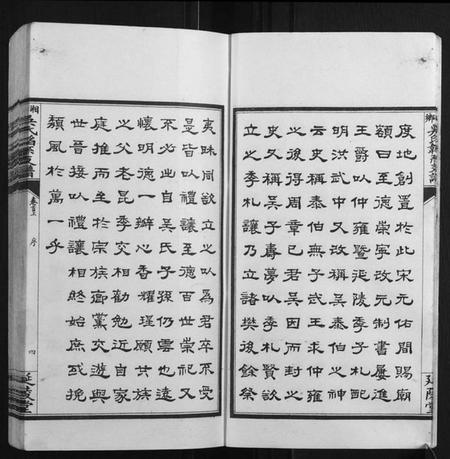 度地創置於此宋元佑間賜廟
額曰至德崇寧改元制書屢進
王爵以仲雍暨延陵季子札配
明洪武中又改稱吳泰伯之神
云史稱泰伯無子武王求仲雍
之後得周章已君吳因而封之
史又稱吳子壽夢以季札賢欲
立之季札讓乃立諸樊後餘祭
夷昧同欲立之以爲君卒不受
是皆以禮讓至德百世崇祀又
不必出自吳氏子孫仍雲也遠
懷明德一瓣心香耀瑾願其族
之父老昆季交相勸勉近自家
庭推而至於宗族鄉黨交遊與
世晉接以禮讓相終始庶或挽
頹風於萬一乎
卷首 序
四